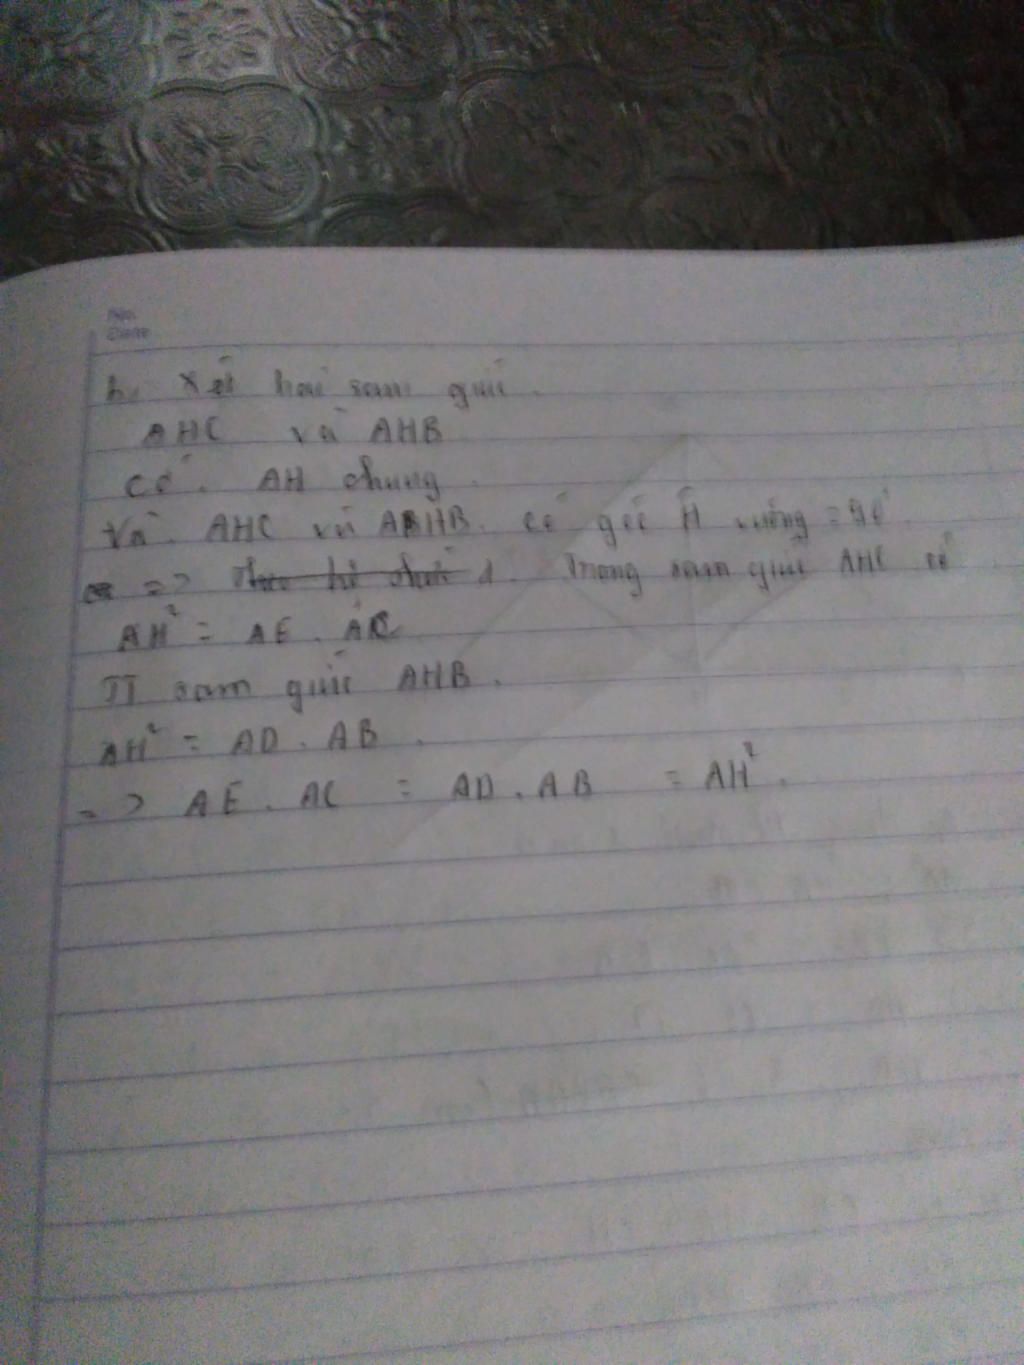 No.
Date
b, Xét hai tam giác.
AHC và AHB
có. AH chung.
Và. AHC và AHB. có góc H vuông = 90°
=> Theo hệ thức 1. Trong tam giác AHC có
AH² = AE. AC
TT tam giác AHB.
AH² = AD. AB.
=> AE. AC = AD. AB = AH².